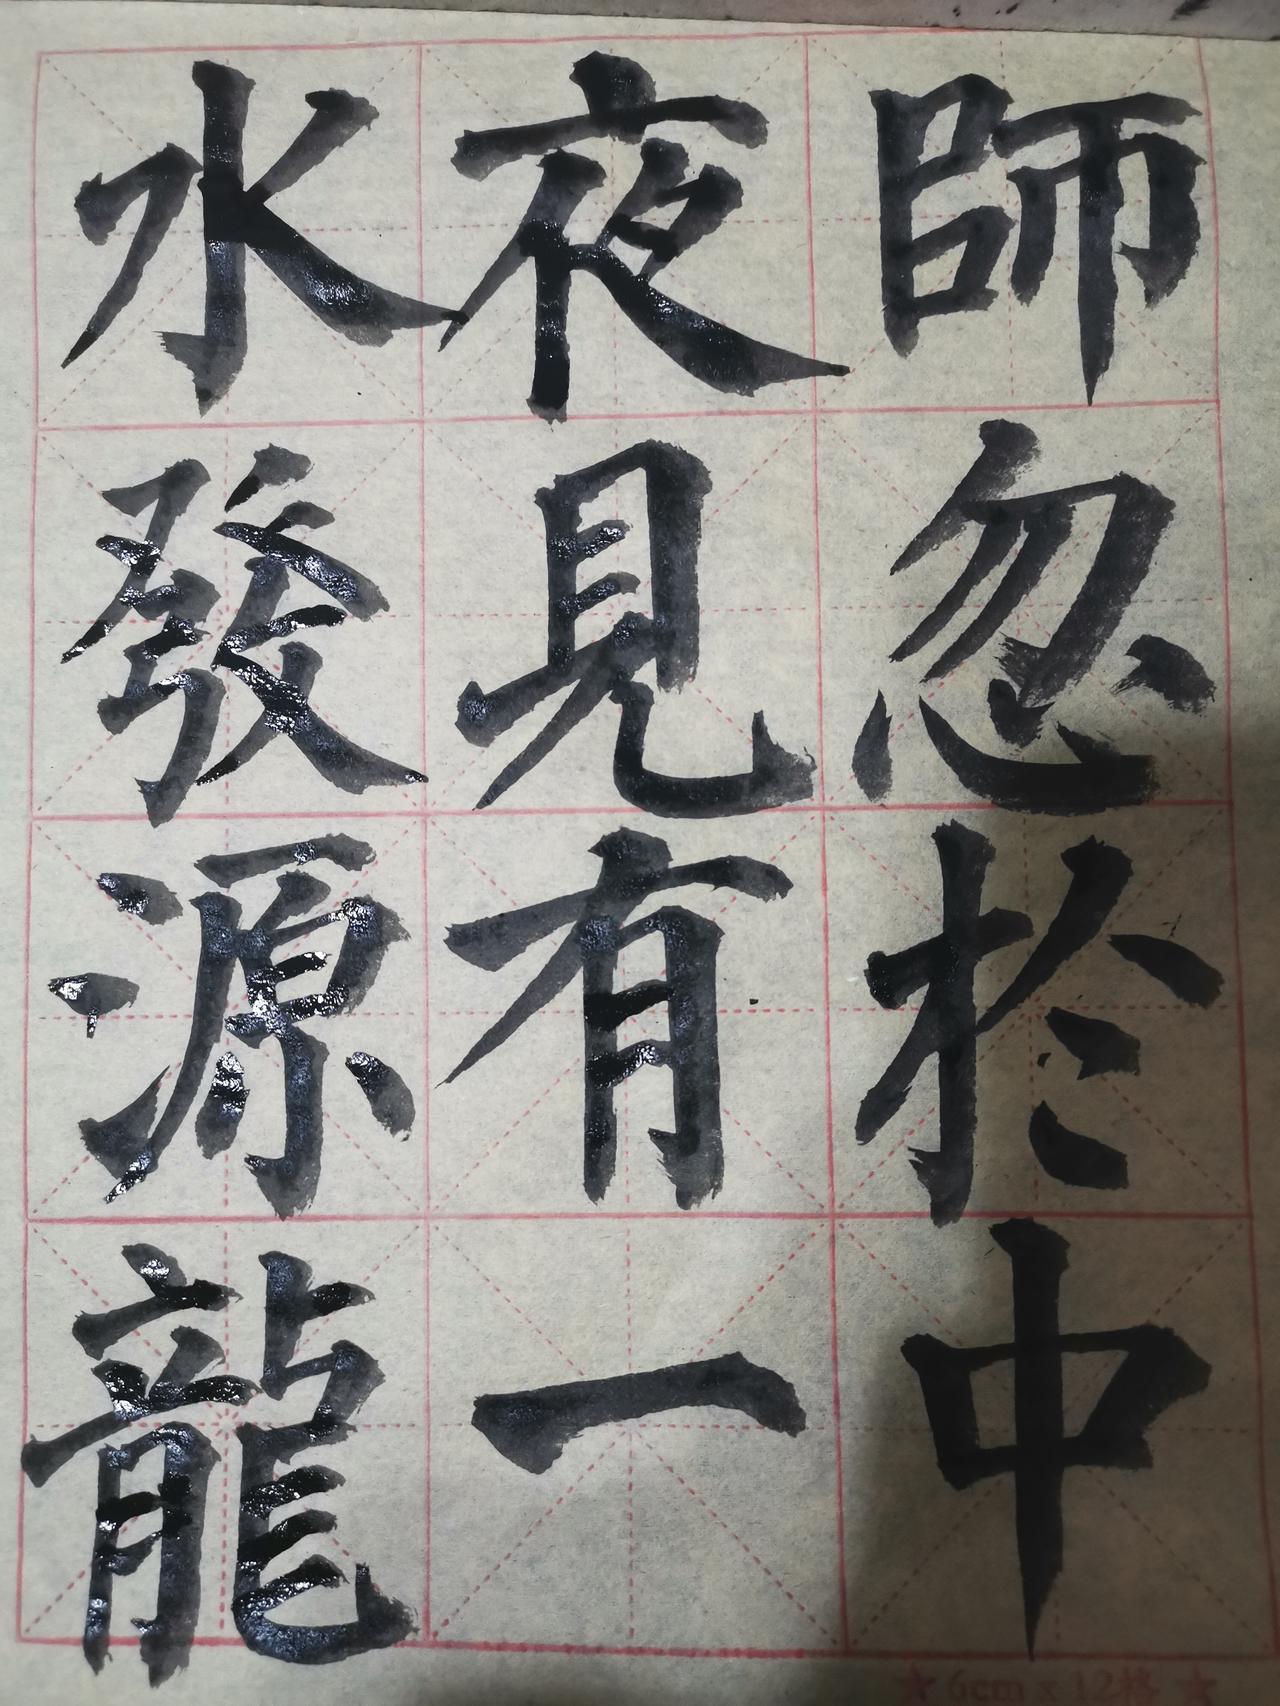 師忽於中
夜見有一
水發源龍
★6cm x 12格★